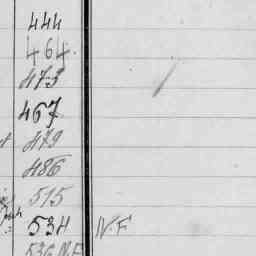 444
464.
473
467
479
486
515
534 N.F
536 N.F